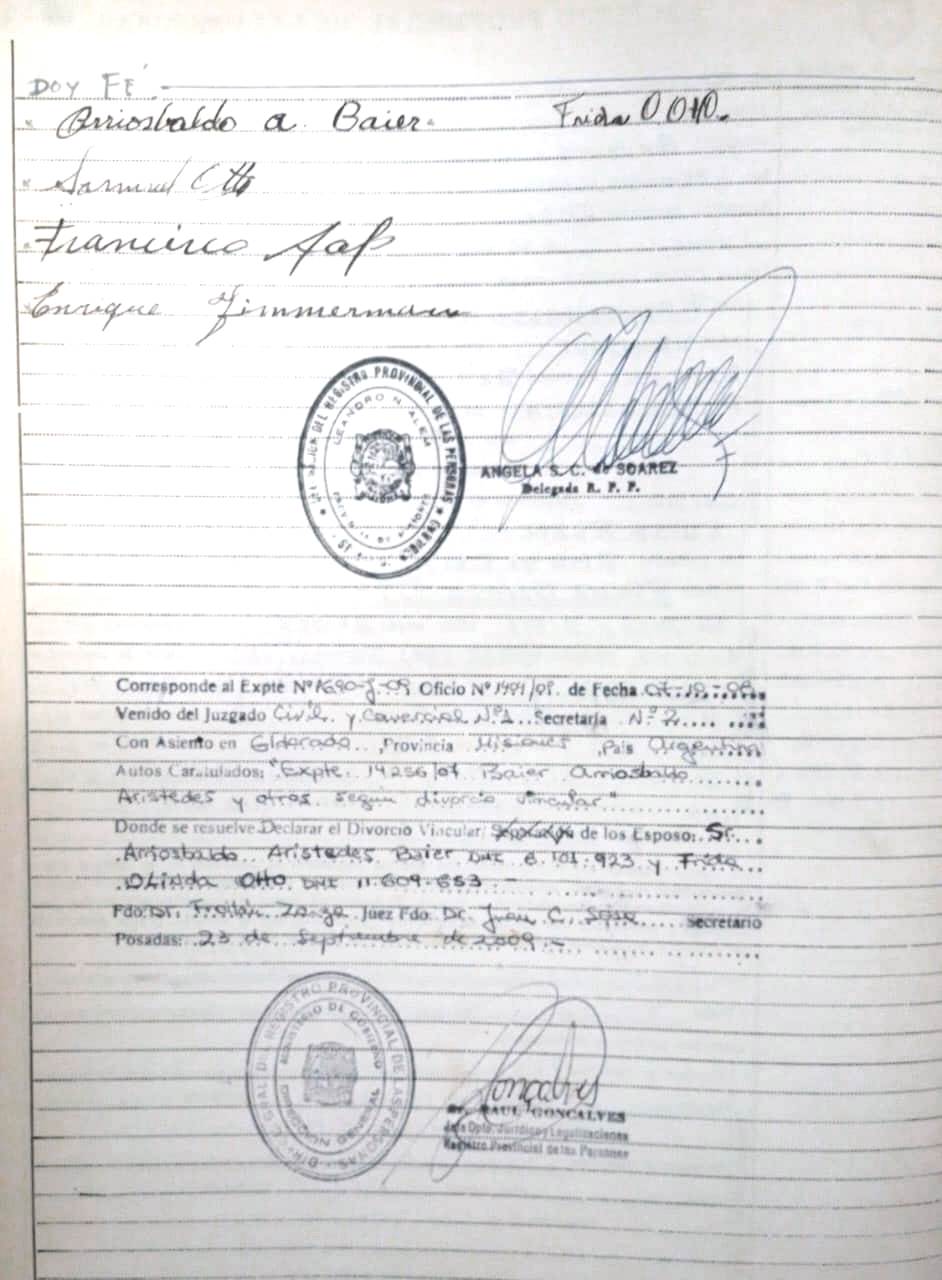 DOY FE.
Arriosbaldo a Baier Frida O. Otto.
Samuel Otto
Francisco
Enrique Zimmermann
DEL REGISTRO PROVINCIAL DE LAS PERSONAS
LEANDRO N. ALEM
PROVINCIA DE MISIONES
ANGELA S. C. de SOAREZ
Delegada R. P. P.
Corresponde al Expte Nº 1690-J-09 Oficio Nº de Fecha
Venido del Juzgado Civil y Comercial Nº1 Secretaria Nº 2
Con Asiento en Eldorado Provincia Misiones Pais Argentina
Autos Caratulados: "Expte. 14256/07 Baier Arriosbaldo
Aristedes y otros según divorcio vincular"
Donde se resuelve Declarar el Divorcio Vincular/ de los Esposo: Sr.
Arriosbaldo Aristedes Baier DNI 8.101.923 y Frida
Olinda Otto DNI 11.609.653.-
Fdo: Dr. Juez Fdo. Dr. Juan C. Sosa Secretario
Posadas: 23 de Septiembre de 2009.-
GRAL DEL REGISTRO PROVINCIAL DE LAS PERSONAS
MINISTERIO DE GOBIERNO
DIRECCION GENERAL
Goncalves
Dr. RAUL GONCALVES
Jefe Dpto. Jurídico y Legalizaciones
Registro Provincial de las Personas